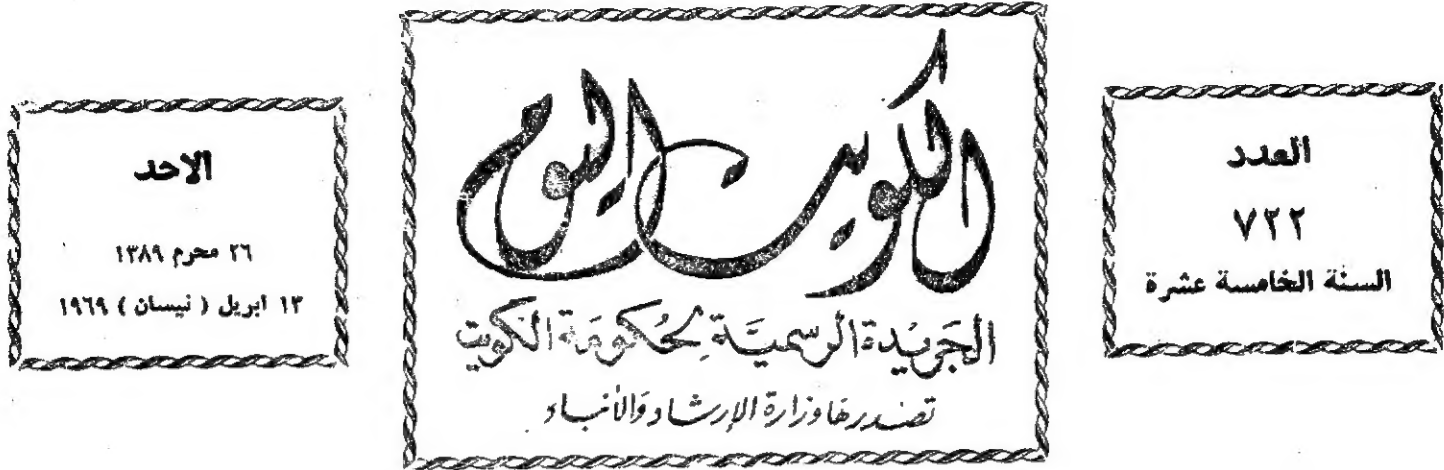 العدد
٧٢٢
السنة الخامسة عشرة
الكويت اليوم
الجريدة الرسمية لحكومة الكويت
تصدرها وزارة الإرشاد والأنباء
الاحد
٢٦ محرم ١٣٨٩
١٣ ابريل ( نيسان ) ١٩٦٩